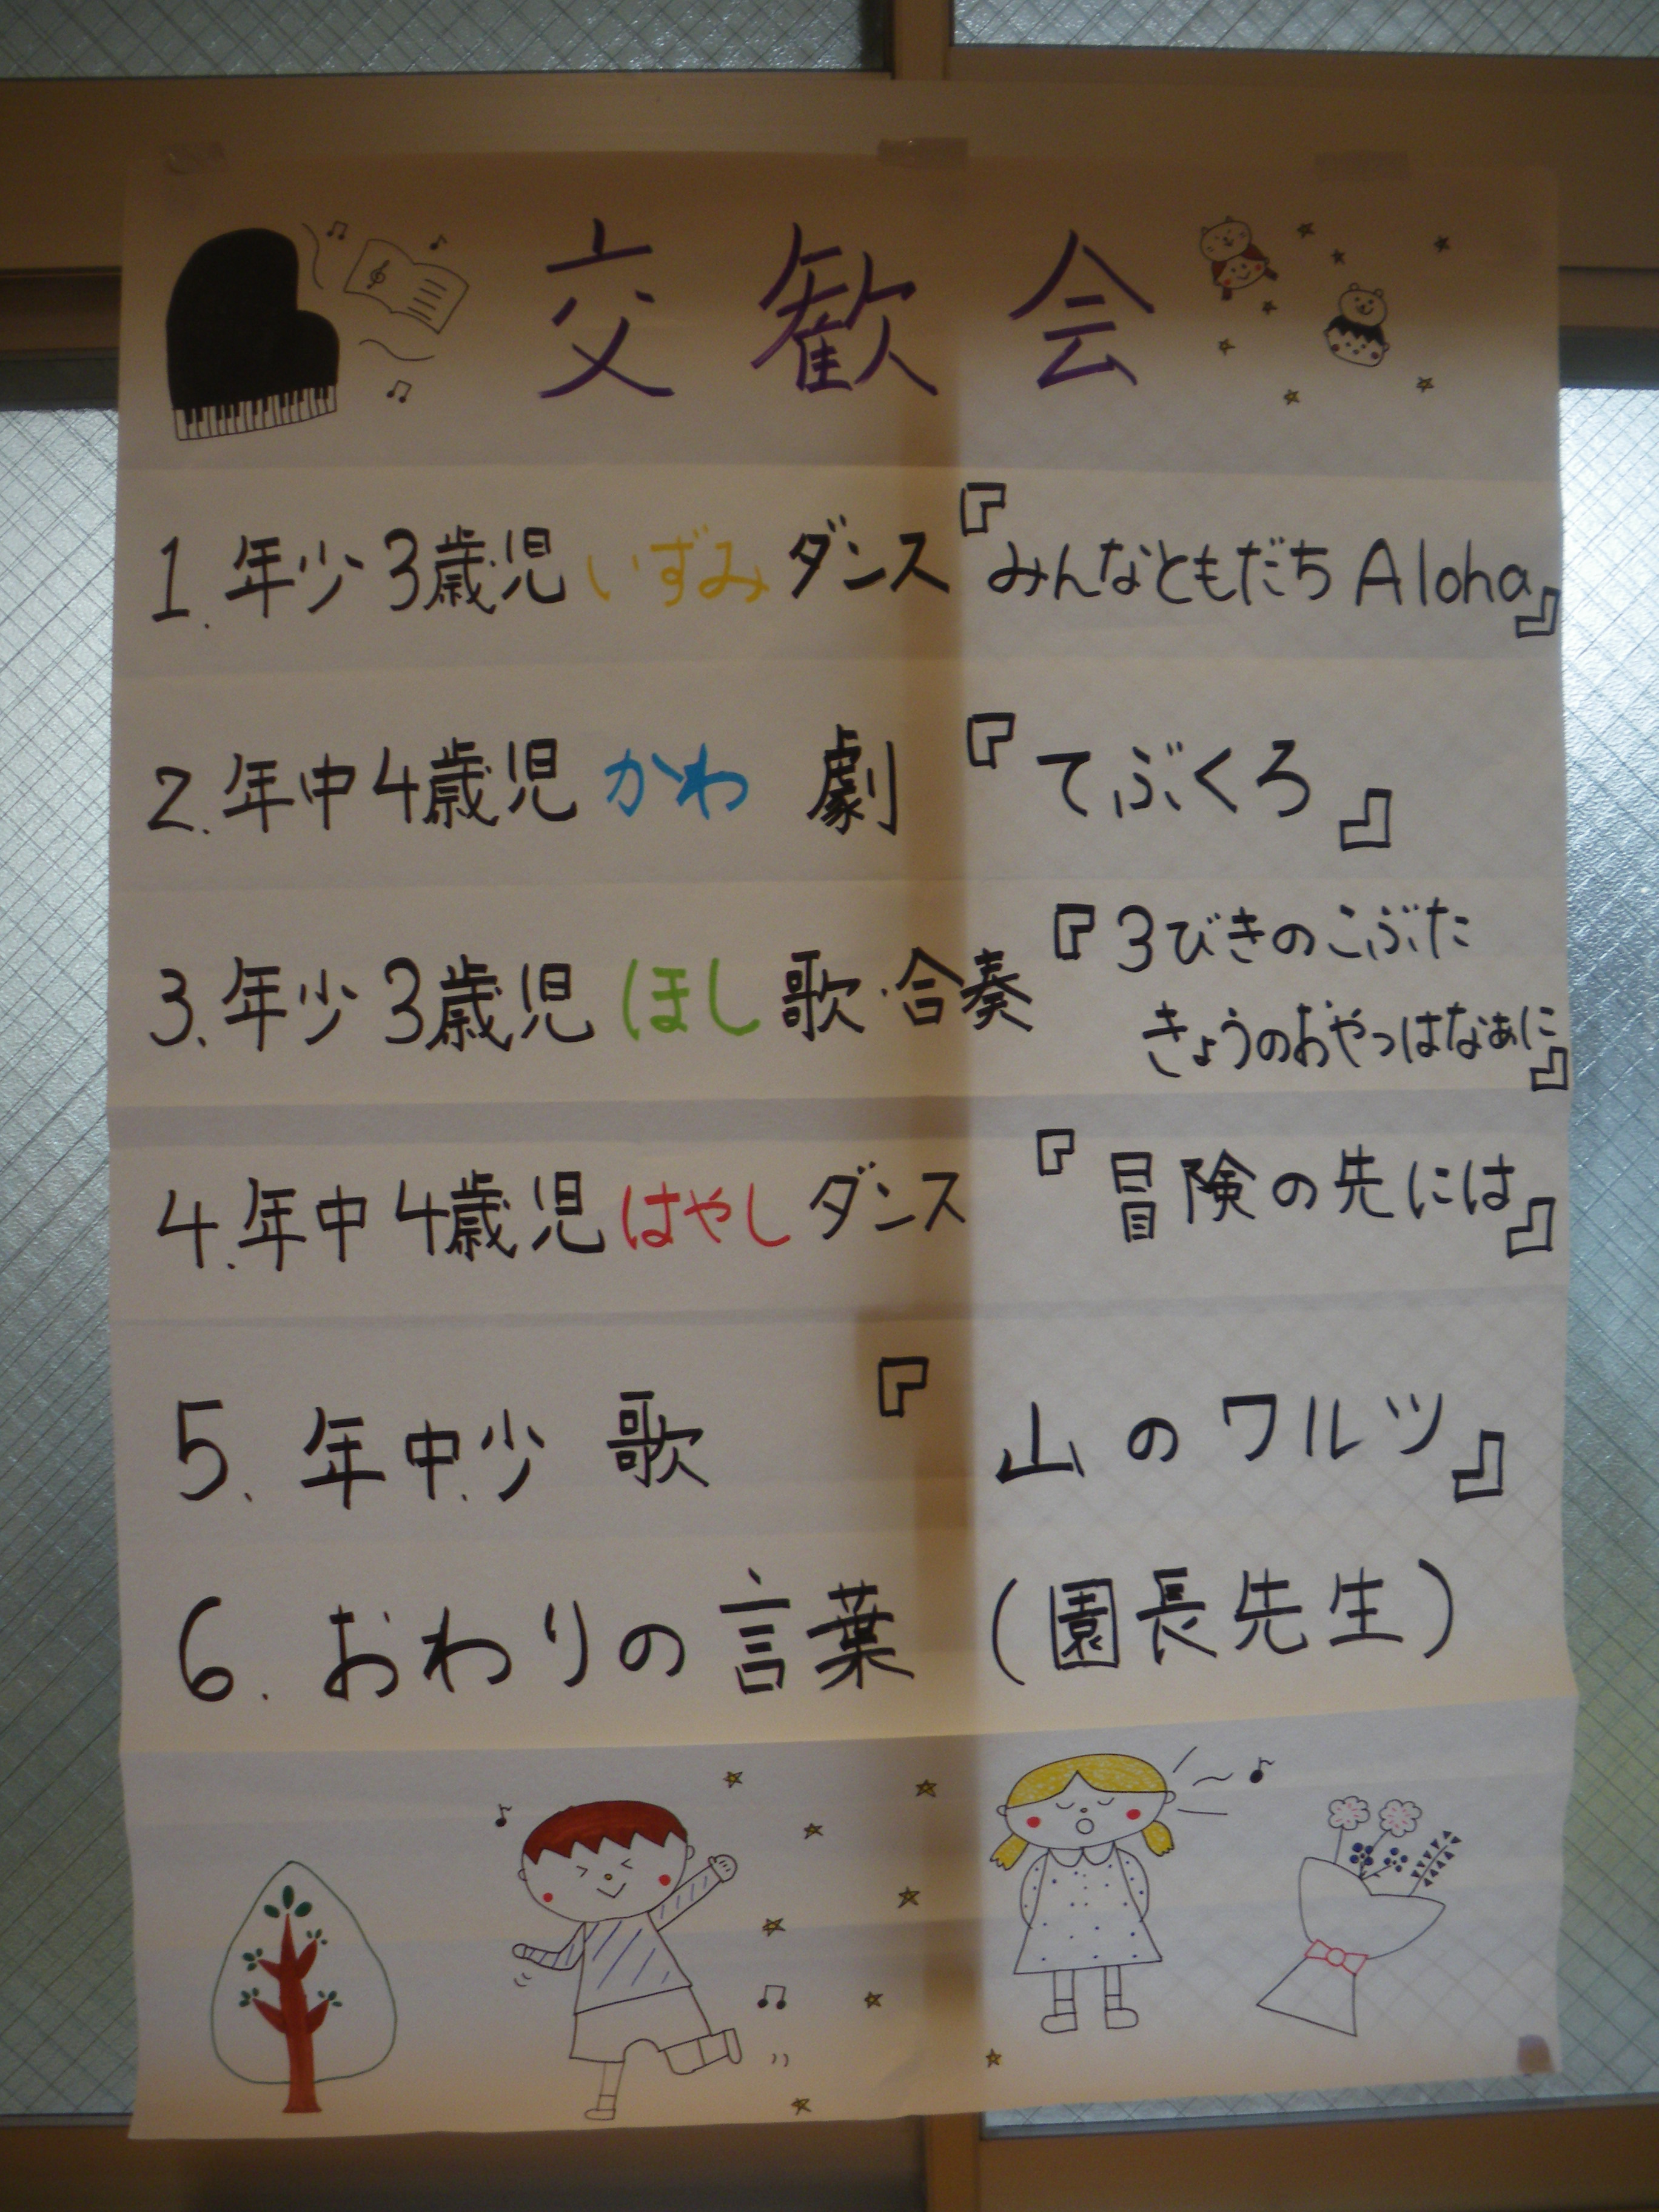 交歓会
1. 年少3歳児 いずみ ダンス『みんなともだち Aloha』
2. 年中4歳児 かわ 劇 『てぶくろ』
3. 年少3歳児 ほし 歌・合奏『3びきのこぶた
きょうのおやつはなぁに』
4. 年中4歳児 はやし ダンス 『冒険の先には』
5. 年中.少 歌 『山のワルツ』
6. おわりの言葉 (園長先生)